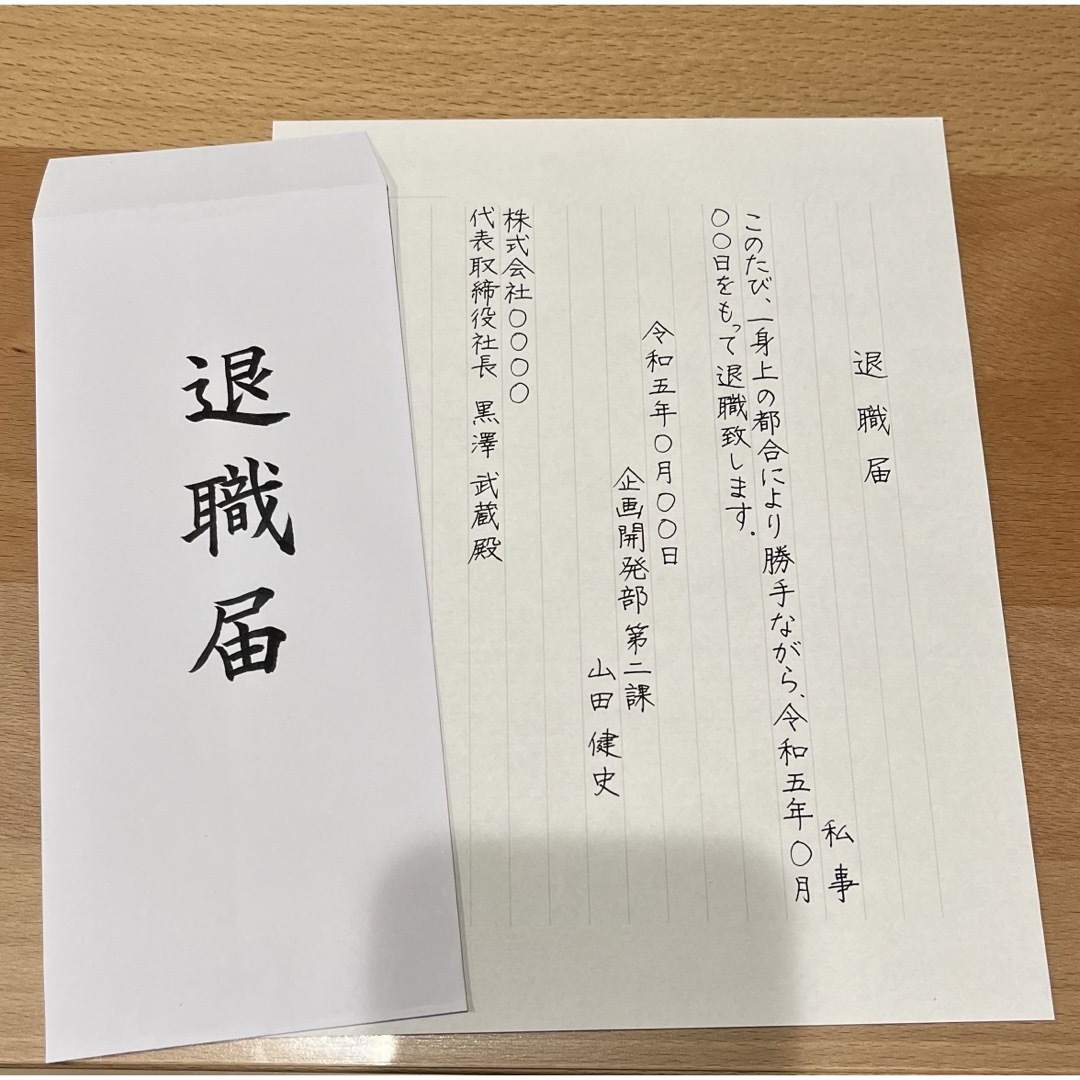 退職届
退職届
私事
このたび、一身上の都合により勝手ながら、令和五年〇月
〇〇日をもって退職致します.
令和五年〇月〇〇日
企画開発部第二課
山田健史
株式会社〇〇〇〇
代表取締役社長 黒澤武蔵殿